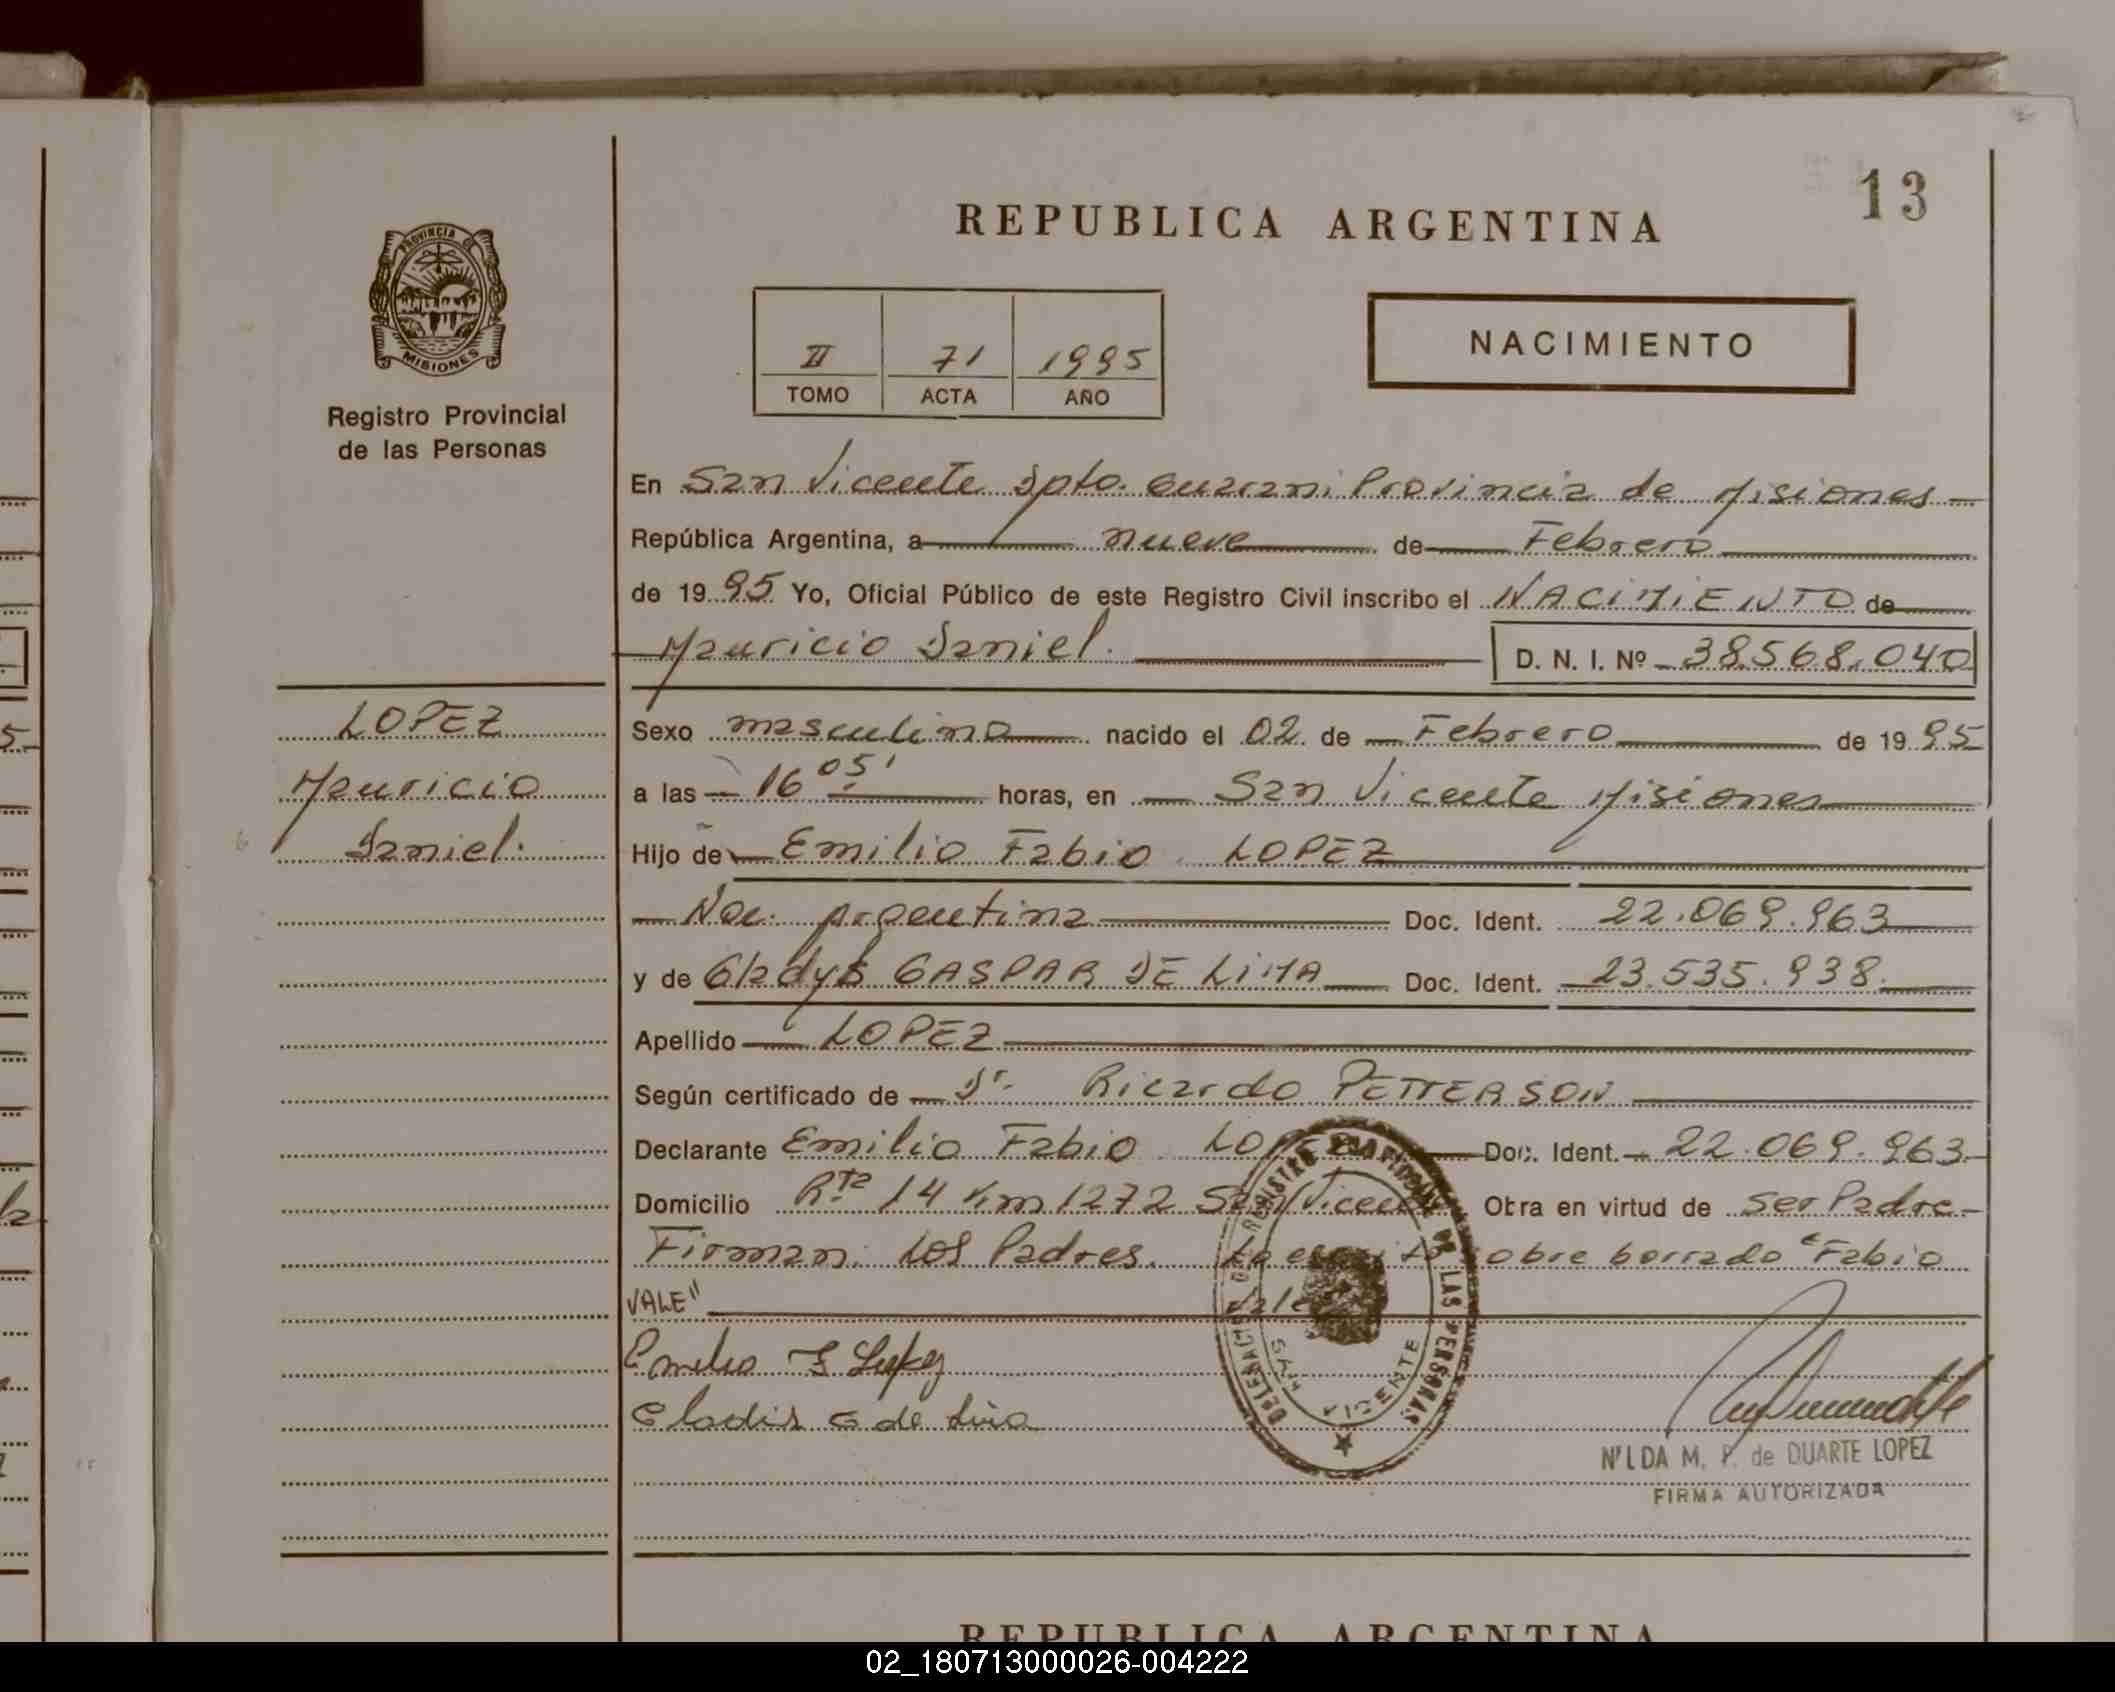 13
REPUBLICA ARGENTINA
PROVINCIA DE
MISIONES
Registro Provincial
de las Personas
II 71 1995
TOMO ACTA AÑO
NACIMIENTO
En San Vicente Dpto. Guarani Provincia de Misiones
República Argentina, a nueve de Febrero
de 1995 Yo, Oficial Público de este Registro Civil inscribo el NACIMIENTO de
Mauricio Daniel. D. N. I. Nº 38.568.040
LOPEZ
Mauricio
Daniel.
Sexo masculino nacido el 02 de Febrero de 1995
a las 16 05' horas, en San Vicente Misiones
Hijo de Emilio Fabio LOPEZ
Nac. Argentina Doc. Ident. 22.069.963
y de Gladys GASPAR DE LIMA Doc. Ident. 23.535.938.
Apellido LOPEZ
Según certificado de Dr. Ricardo PETTERSON
Declarante Emilio Fabio LOPEZ Doc. Ident. 22.069.963
Domicilio Rta 14 Km 1272 San Vicente Obra en virtud de ser Padre
Firman: Los Padres. Lo escrito sobre borrado "Fabio
VALE" Vale
Emilio F Lopez
Gladis G de Lima
DELEGACION DEL REGISTRO PROVINCIAL DE LAS PERSONAS
SAN VICENTE
NILDA M. P. de DUARTE LOPEZ
FIRMA AUTORIZADA
REPUBLICA ARGENTINA
02_180713000026-004222